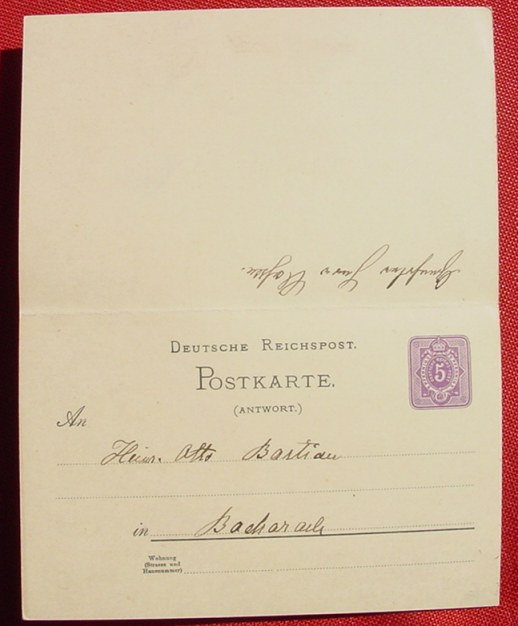 DEUTSCHE REICHSPOST.
POSTKARTE.
(ANTWORT.)
5
An
Heinr. Otto Bastian
in Bacharach
Wohnung
(Strasse und
Hausnummer)